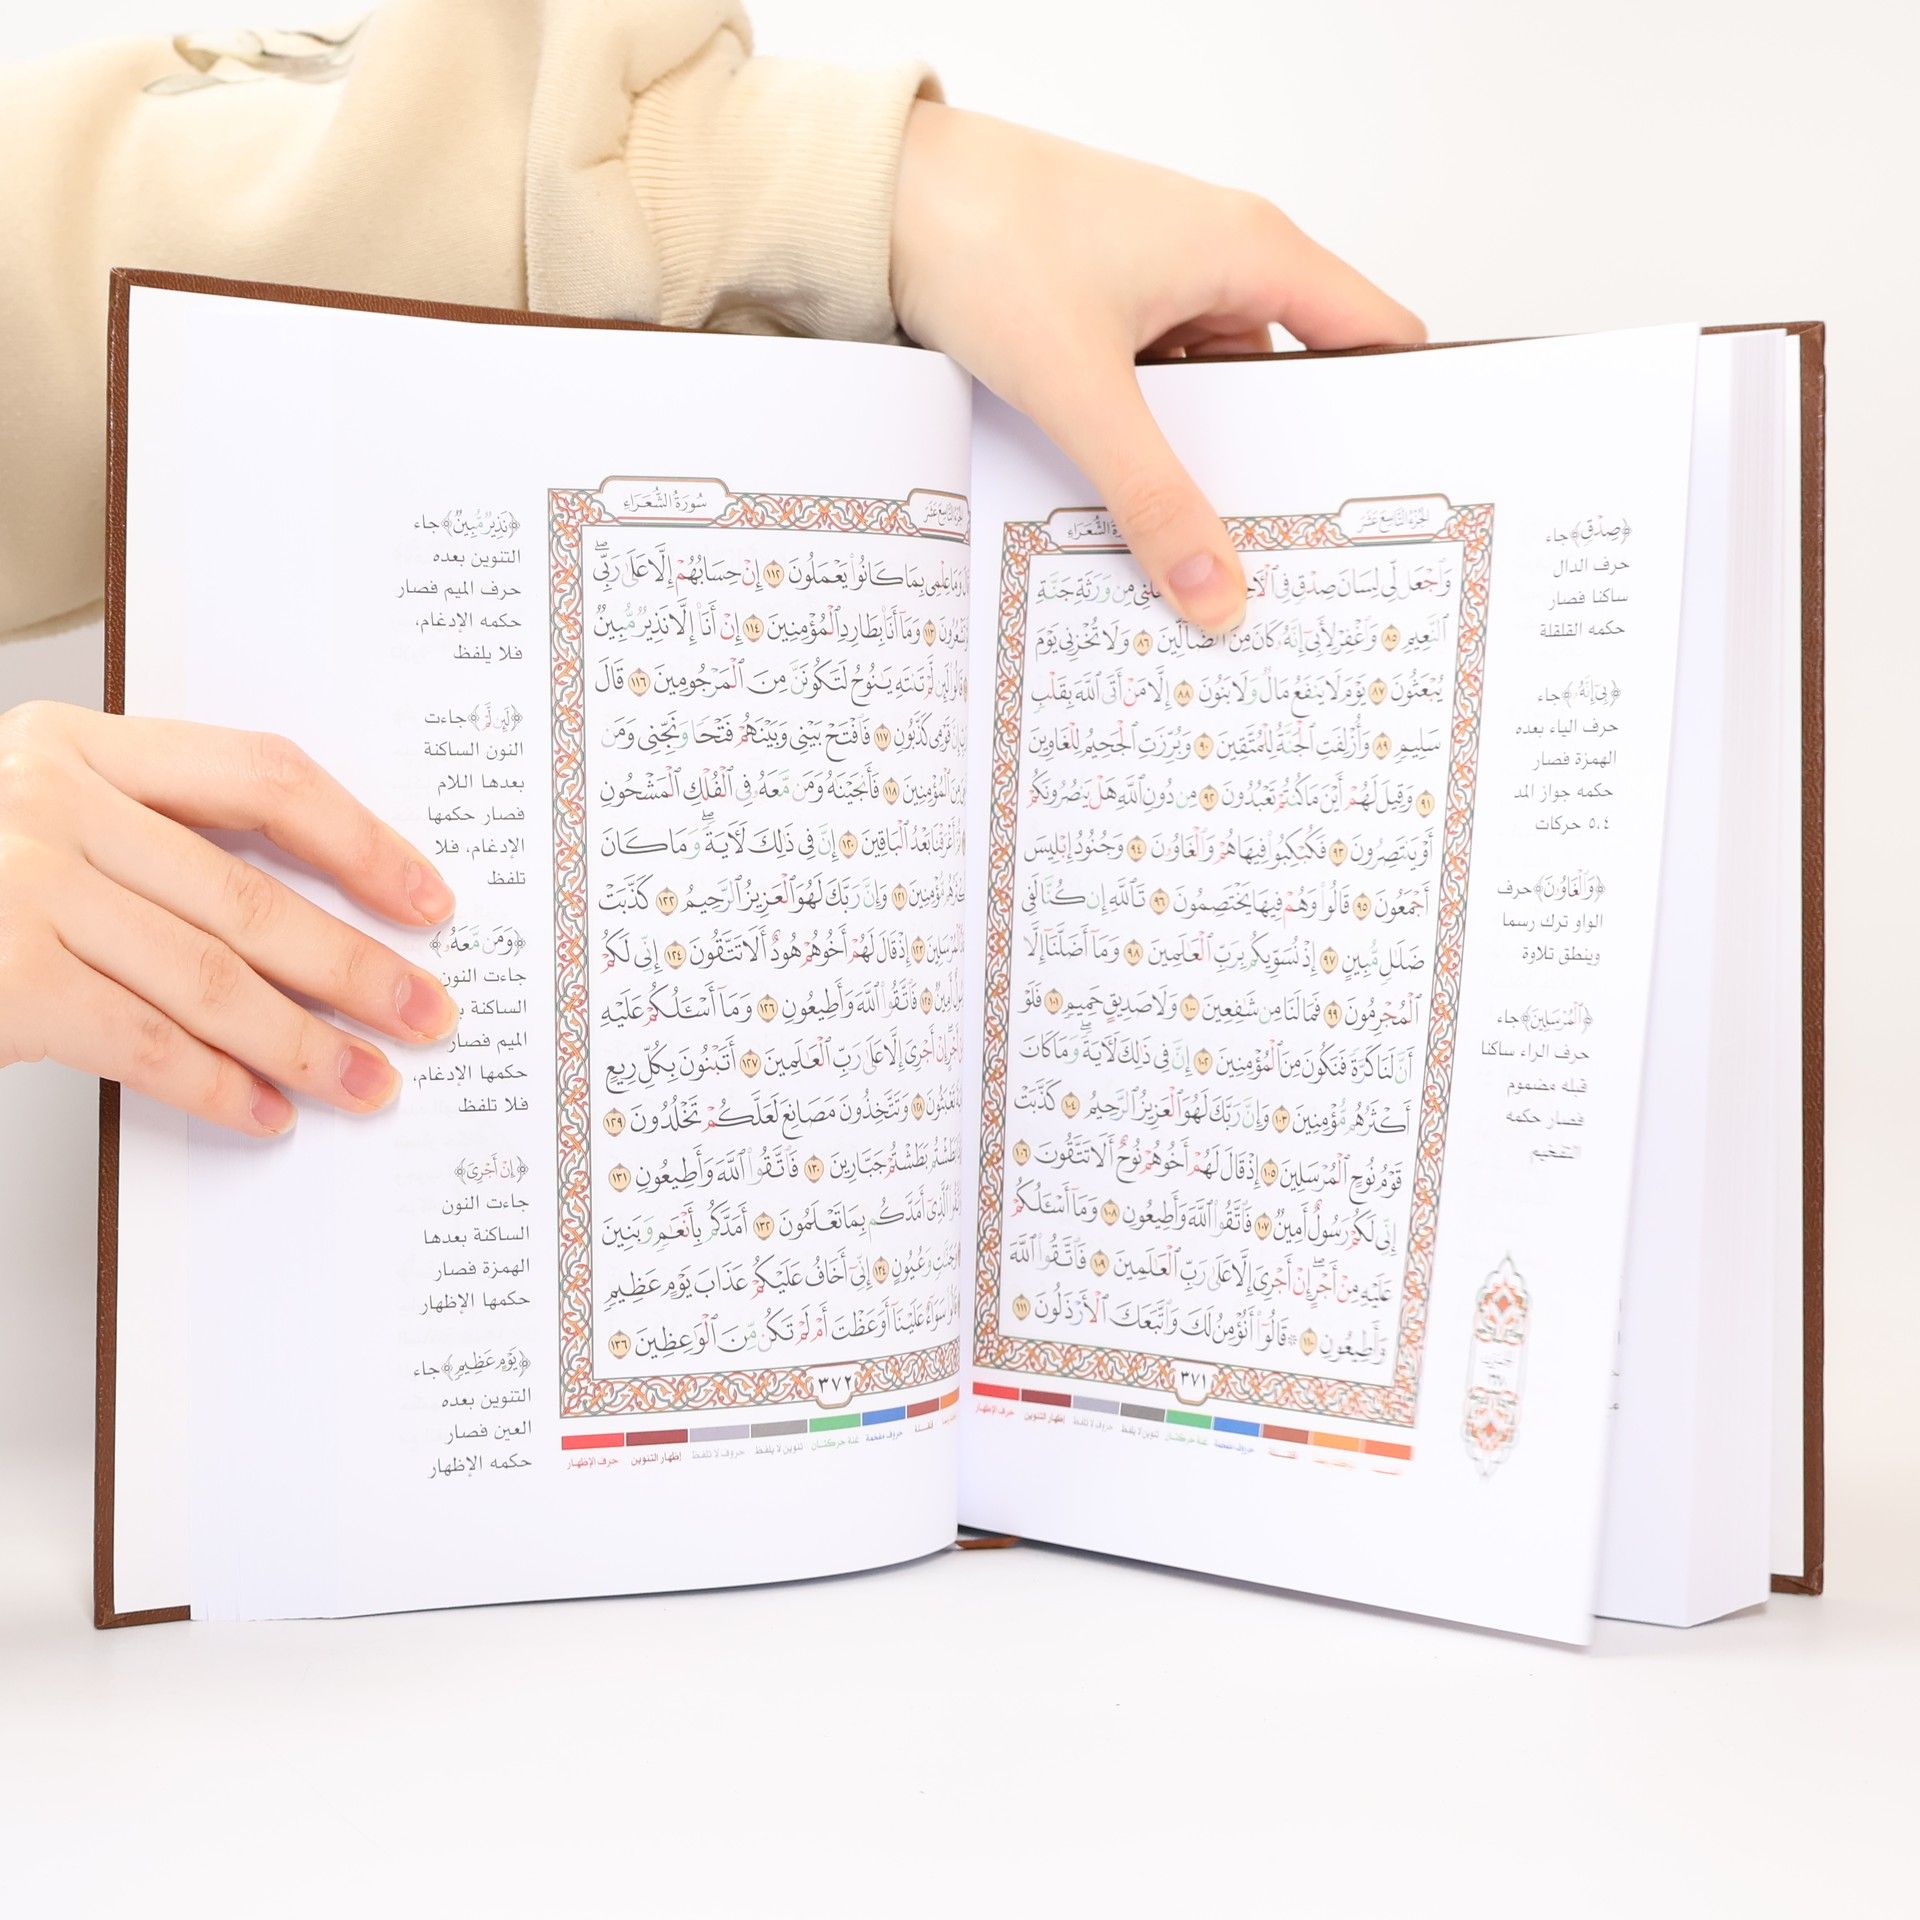 الجزء التاسع عشر
سورة الشعراء
وَٱجْعَل لِّى لِسَانَ صِدْقٍ فِى ٱلْأَخِ مِن وَرَثَةِ جَنَّةِ
ٱلنَّعِيمِ ٨٥ وَٱغْفِرْ لِأَبِىٓ إِنَّهُۥ كَانَ مِنَ ٱلضَّآلِّينَ ٨٦ وَلَا تُخْزِنِى يَوْمَ
يُبْعَثُونَ ٨٧ يَوْمَ لَا يَنفَعُ مَالٌ وَلَا بَنُونَ ٨٨ إِلَّا مَنْ أَتَى ٱللَّهَ بِقَلْبٍ
سَلِيمٍ ٨٩ وَأُزْلِفَتِ ٱلْجَنَّةُ لِلْمُتَّقِينَ ٩٠ وَبُرِّزَتِ ٱلْجَحِيمُ لِلْغَاوِينَ
٩١ وَقِيلَ لَهُمْ أَيْنَ مَا كُنتُمْ تَعْبُدُونَ ٩٢ مِن دُونِ ٱللَّهِ هَلْ يَنصُرُونَكُمْ
أَوْ يَنتَصِرُونَ ٩٣ فَكُبْكِبُوا۟ فِيهَا هُمْ وَٱلْغَاوُۥنَ ٩٤ وَجُنُودُ إِبْلِيسَ
أَجْمَعُونَ ٩٥ قَالُوا۟ وَهُمْ فِيهَا يَخْتَصِمُونَ ٩٦ تَٱللَّهِ إِن كُنَّا لَفِى
ضَلَٰلٍ مُّبِينٍ ٩٧ إِذْ نُسَوِّيكُم بِرَبِّ ٱلْعَٰلَمِينَ ٩٨ وَمَآ أَضَلَّنَآ إِلَّا
ٱلْمُجْرِمُونَ ٩٩ فَمَا لَنَا مِن شَٰفِعِينَ ١٠٠ وَلَا صَدِيقٍ حَمِيمٍ ١٠١ فَلَوْ
أَنَّ لَنَا كَرَّةً فَنَكُونَ مِنَ ٱلْمُؤْمِنِينَ ١٠٢ إِنَّ فِى ذَٰلِكَ لَءَايَةً ۖ وَمَا كَانَ
أَكْثَرُهُم مُّؤْمِنِينَ ١٠٣ وَإِنَّ رَبَّكَ لَهُوَ ٱلْعَزِيزُ ٱلرَّحِيمُ ١٠٤ كَذَّبَتْ
قَوْمُ نُوحٍ ٱلْمُرْسَلِينَ ١٠٥ إِذْ قَالَ لَهُمْ أَخُوهُمْ نُوحٌ أَلَا تَتَّقُونَ ١٠٦
إِنِّى لَكُمْ رَسُولٌ أَمِينٌ ١٠٧ فَٱتَّقُوا۟ ٱللَّهَ وَأَطِيعُونِ ١٠٨ وَمَآ أَسْـَٔلُكُمْ
عَلَيْهِ مِنْ أَجْرٍ ۖ إِنْ أَجْرِىَ إِلَّا عَلَىٰ رَبِّ ٱلْعَٰلَمِينَ ١٠٩ فَٱتَّقُوا۟ ٱللَّهَ
وَأَطِيعُونِ ١١٠ ۞ قَالُوٓا۟ أَنُؤْمِنُ لَكَ وَٱتَّبَعَكَ ٱلْأَرْذَلُونَ ١١١
٣٧١
حرف الإظهار
إظهار التنوين
حروف لا تلفظ
تنوين لا يلفظ
غنة حركتان
حروف مفخمة
قلقلة
﴿صِدْقٍ﴾ جاء
حرف الدال
ساكنا فصار
حكمه القلقلة
﴿بِىٓ إِنَّهُۥ﴾ جاء
حرف الياء بعده
الهمزة فصار
حكمه جواز المد
٥،٤ حركات
﴿وَٱلْغَاوُۥنَ﴾ حرف
الواو ترك رسما
وينطق تلاوة
﴿ٱلْمُرْسَلِينَ﴾ جاء
حرف الراء ساكنا
قبله مضموم
فصار حكمه
التفخيم
الجزء التاسع عشر
سورة الشعراء
وَمَا عِلْمِى بِمَا كَانُوا۟ يَعْمَلُونَ ١١٢ إِنْ حِسَابُهُمْ إِلَّا عَلَىٰ رَبِّى ۖ
١١٣ وَمَآ أَنَا۠ بِطَارِدِ ٱلْمُؤْمِنِينَ ١١٤ إِنْ أَنَا۠ إِلَّا نَذِيرٌ مُّبِينٌ
لَّمْ تَنتَهِ يَٰنُوحُ لَتَكُونَنَّ مِنَ ٱلْمَرْجُومِينَ ١١٦ قَالَ
إِنَّ قَوْمِى كَذَّبُونِ ١١٧ فَٱفْتَحْ بَيْنِى وَبَيْنَهُمْ فَتْحًا وَنَجِّنِى وَمَن
مِنَ ٱلْمُؤْمِنِينَ ١١٨ فَأَنجَيْنَٰهُ وَمَن مَّعَهُۥ فِى ٱلْفُلْكِ ٱلْمَشْحُونِ
أَغْرَقْنَا بَعْدُ ٱلْبَاقِينَ ١٢٠ إِنَّ فِى ذَٰلِكَ لَءَايَةً ۖ وَمَا كَانَ
مُّؤْمِنِينَ ١٢١ وَإِنَّ رَبَّكَ لَهُوَ ٱلْعَزِيزُ ٱلرَّحِيمُ ١٢٢ كَذَّبَتْ
١٢٣ إِذْ قَالَ لَهُمْ أَخُوهُمْ هُودٌ أَلَا تَتَّقُونَ ١٢٤ إِنِّى لَكُمْ
أَمِينٌ ١٢٥ فَٱتَّقُوا۟ ٱللَّهَ وَأَطِيعُونِ ١٢٦ وَمَآ أَسْـَٔلُكُمْ عَلَيْهِ
إِنْ أَجْرِىَ إِلَّا عَلَىٰ رَبِّ ٱلْعَٰلَمِينَ ١٢٧ أَتَبْنُونَ بِكُلِّ رِيعٍ
تَعْبَثُونَ ١٢٨ وَتَتَّخِذُونَ مَصَانِعَ لَعَلَّكُمْ تَخْلُدُونَ ١٢٩
بَطَشْتُم بَطَشْتُمْ جَبَّارِينَ ١٣٠ فَٱتَّقُوا۟ ٱللَّهَ وَأَطِيعُونِ ١٣١
ٱلَّذِىٓ أَمَدَّكُم بِمَا تَعْلَمُونَ ١٣٢ أَمَدَّكُم بِأَنْعَٰمٍ وَبَنِينَ
وَعُيُونٍ ١٣٤ إِنِّىٓ أَخَافُ عَلَيْكُمْ عَذَابَ يَوْمٍ عَظِيمٍ
سَوَآءٌ عَلَيْنَآ أَوَعَظْتَ أَمْ لَمْ تَكُن مِّنَ ٱلْوَٰعِظِينَ ١٣٦
٣٧٢
حرف الإظهار
إظهار التنوين
حروف لا تلفظ
تنوين لا يلفظ
غنة حركتان
حروف مفخمة
قلقلة
﴿نَذِيرٌ مُّبِينٌ﴾ جاء
التنوين بعده
حرف الميم فصار
حكمه الإدغام،
فلا يلفظ
﴿لَئِن لَّمْ﴾ جاءت
النون الساكنة
بعدها اللام
فصار حكمها
الإدغام، فلا
تلفظ
﴿وَمَن مَّعَهُۥ﴾
جاءت النون
الساكنة
الميم فصار
حكمها الإدغام،
فلا تلفظ
﴿إِنْ أَجْرِىَ﴾
جاءت النون
الساكنة بعدها
الهمزة فصار
حكمها الإظهار
﴿يَوْمٍ عَظِيمٍ﴾ جاء
التنوين بعده
العين فصار
حكمه الإظهار